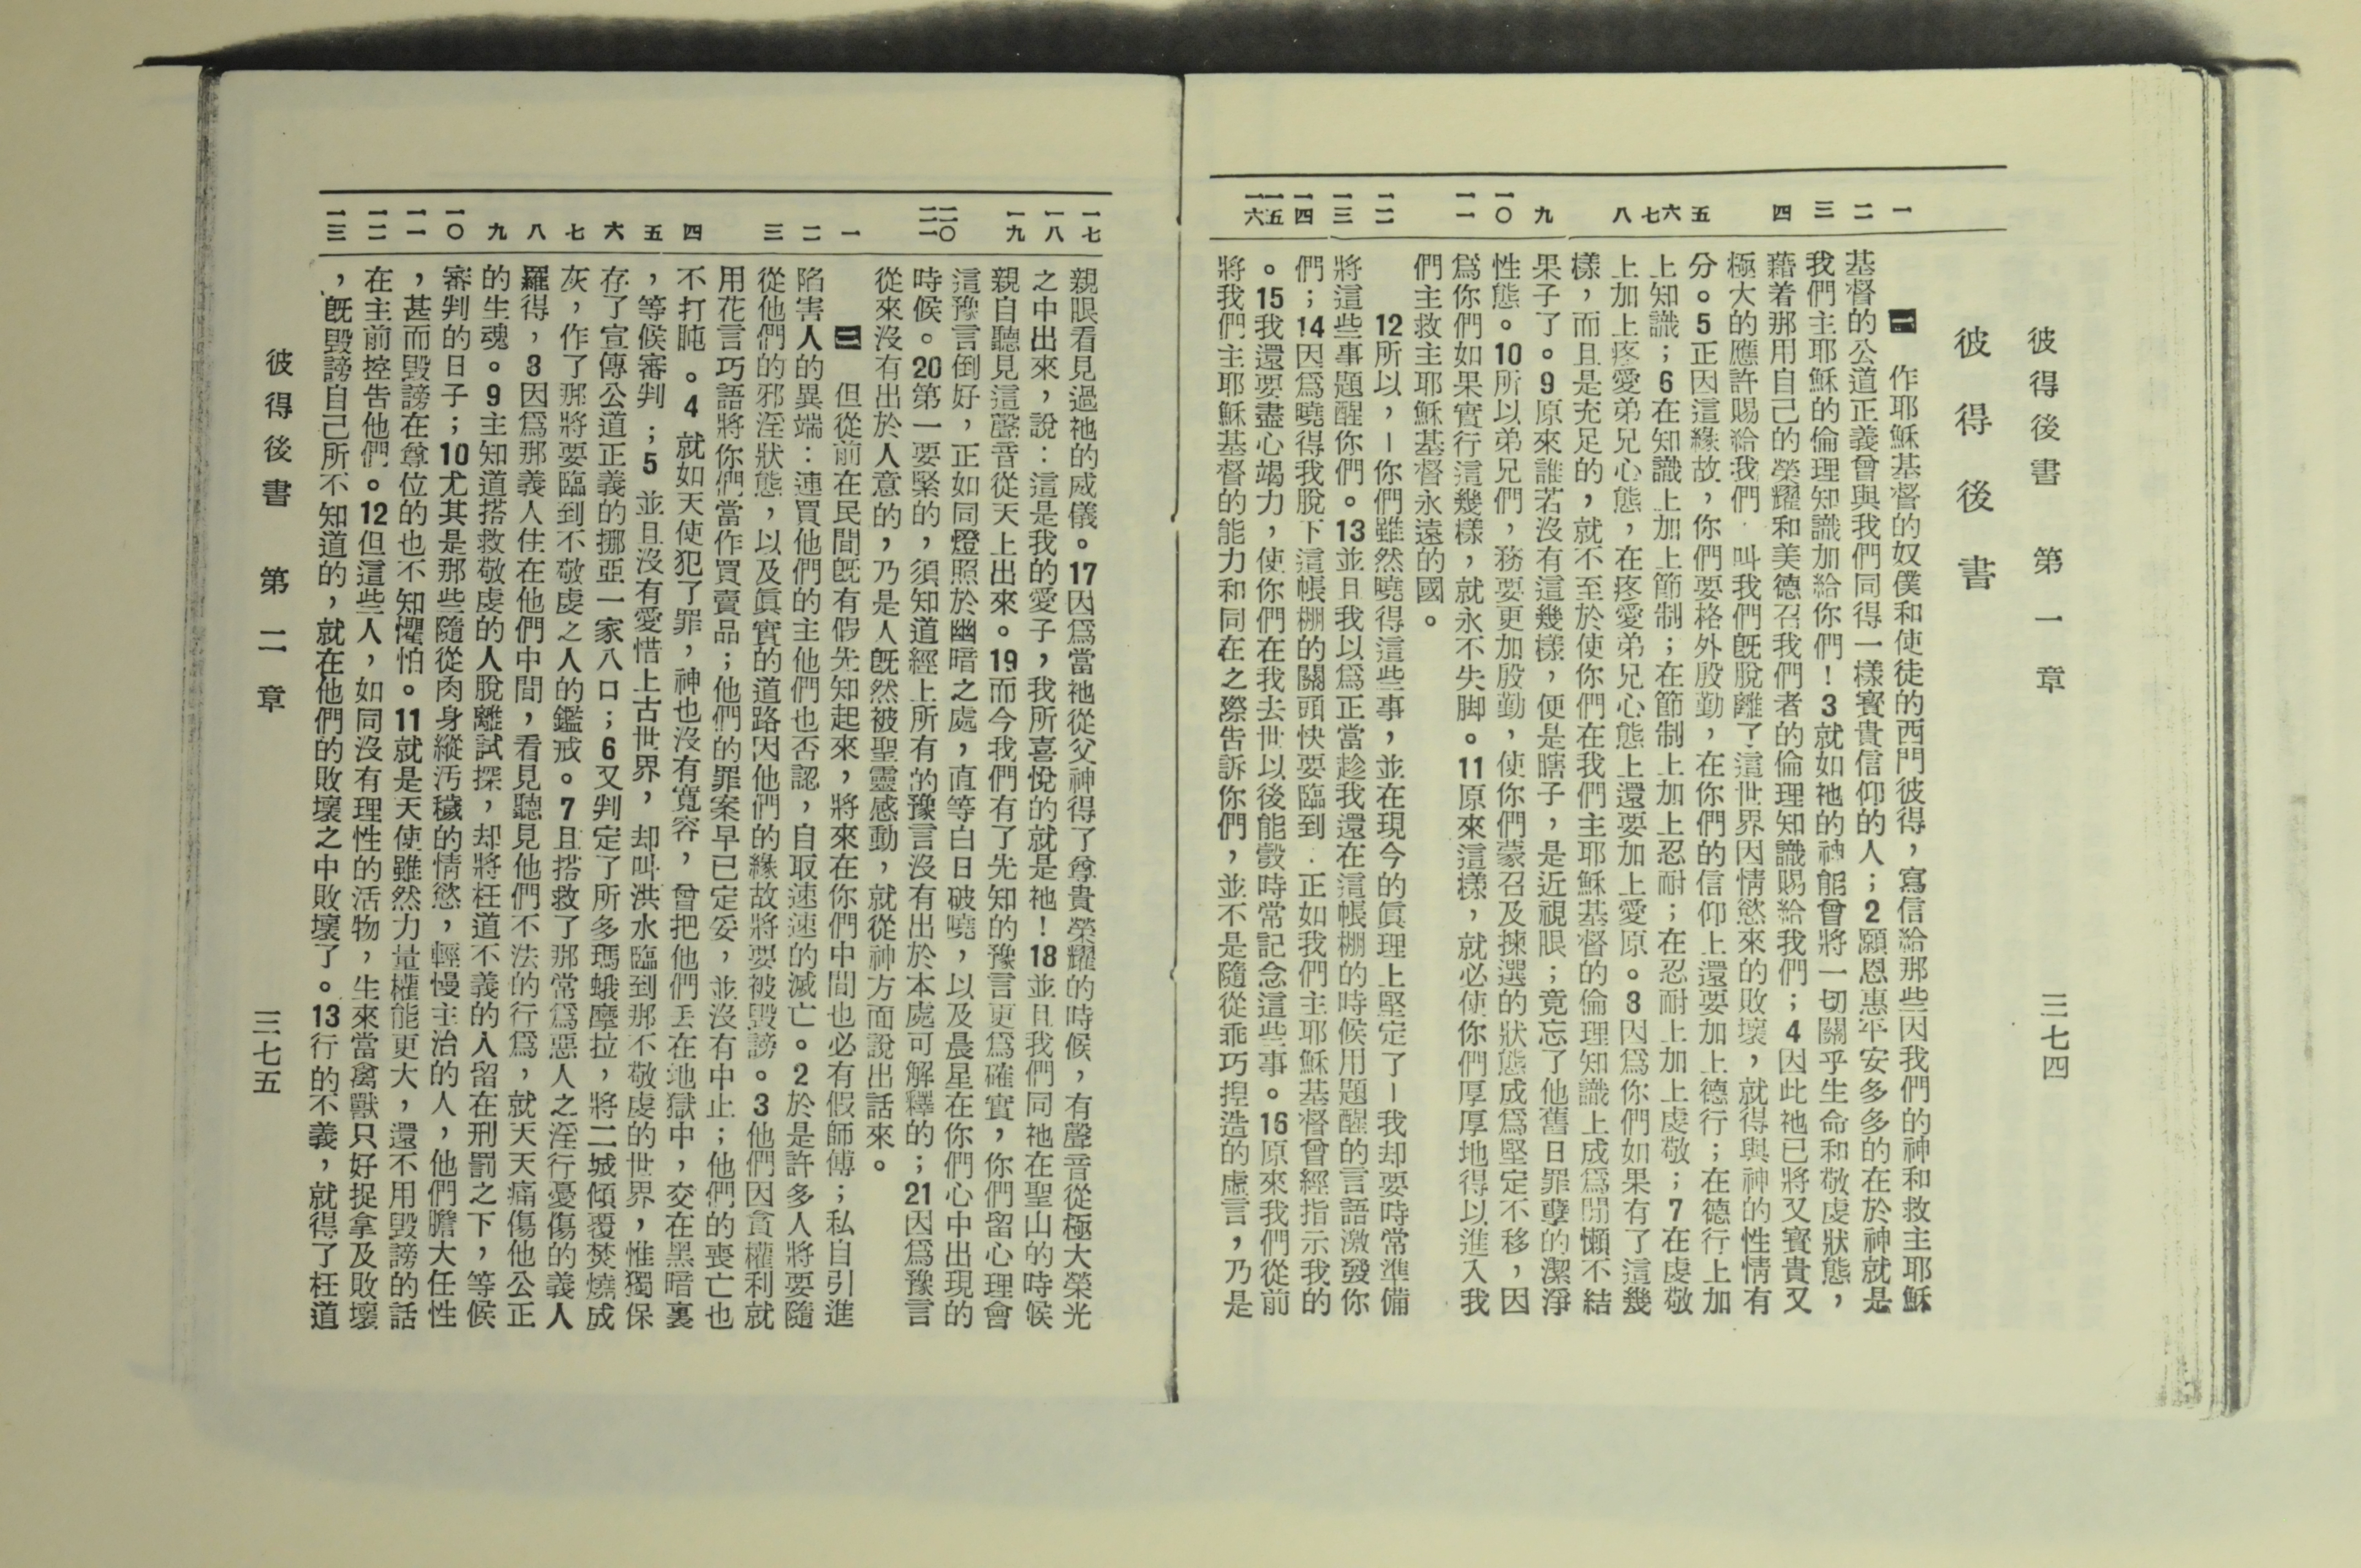 彼得後書　第一章　三七四
彼得後書
一　二　三　四　五　六　七　八　九　一〇　一一　一二　一三　一四　一五　一六
一　作耶穌基督的奴僕和使徒的西門彼得，寫信給那些因我們的神和救主耶穌
基督的公道正義曾與我們同得一樣寶貴信仰的人；2願恩惠平安多多的在於神就是
我們主耶穌的倫理知識加給你們！3就如祂的神能曾將一切關乎生命和敬虔狀態，
藉着那用自己的榮耀和美德召我們者的倫理知識賜給我們；4因此祂已將又寶貴又
極大的應許賜給我們．叫我們旣脫離了這世界因情慾來的敗壞，就得與神的性情有
分。5正因這緣故，你們要格外殷勤，在你們的信仰上還要加上德行；在德行上加
上知識；6在知識上加上節制；在節制上加上忍耐；在忍耐上加上虔敬；7在虔敬
上加上疼愛弟兄心態，在疼愛弟兄心態上還要加上愛原。8因爲你們如果有了這幾
樣，而且是充足的，就不至於使你們在我們主耶穌基督的倫理知識上成爲閒懶不結
果子了。9原來誰若沒有這幾樣，便是瞎子，是近視眼；竟忘了他舊日罪孽的潔淨
性態。10所以弟兄們，務要更加殷勤，使你們蒙召及揀選的狀態成爲堅定不移，因
爲你們如果實行這幾樣，就永不失脚。11原來這樣，就必使你們厚厚地得以進入我
們主救主耶穌基督永遠的國。
12所以，－你們雖然曉得這些事，並在現今的眞理上堅定了－我却要時常準備
將這些事題醒你們。13並且我以爲正當趁我還在這帳棚的時候用題醒的言語激發你
們；14因爲曉得我脫下這帳棚的關頭快要臨到．正如我們主耶穌基督曾經指示我的
。15我還要盡心竭力，使你們在我去世以後能彀時常記念這些事。16原來我們從前
將我們主耶穌基督的能力和同在之際告訴你們，並不是隨從乖巧捏造的虛言，乃是
一七　一八　一九　二〇　二一　一　二　三　四　五　六　七　八　九　一〇　一一　一二　一三
親眼看見過祂的威儀。17因爲當祂從父神得了尊貴榮耀的時候，有聲音從極大榮光
之中出來，說：這是我的愛子，我所喜悅的就是祂！18並且我們同祂在聖山的時候
親自聽見這聲音從天上出來。19而今我們有了先知的豫言更爲確實，你們留心理會
這豫言倒好，正如同燈照於幽暗之處，直等白日破曉，以及晨星在你們心中出現的
時候。20第一要緊的，須知道經上所有的豫言沒有出於本處可解釋的；21因爲豫言
從來沒有出於人意的，乃是人旣然被聖靈感動，就從神方面說出話來。
二　但從前在民間旣有假先知起來，將來在你們中間也必有假師傅；私自引進
陷害人的異端：連買他們的主他們也否認，自取速速的滅亡。2於是許多人將要隨
從他們的邪淫狀態，以及眞實的道路因他們的緣故將要被毀謗。3他們因貪權利就
用花言巧語將你們當作買賣品；他們的罪案早已定妥，並沒有中止；他們的喪亡也
不打盹。4就如天使犯了罪，神也沒有寬容，曾把他們丟在地獄中，交在黑暗裏
，等候審判；5並且沒有愛惜上古世界，却叫洪水臨到那不敬虔的世界，惟獨保
存了宣傳公道正義的挪亞一家八口；6又判定了所多瑪蛾摩拉，將二城傾覆焚燒成
灰，作了那將要臨到不敬虔之人的鑑戒。7且搭救了那常爲惡人之淫行憂傷的義人
羅得，3因爲那義人住在他們中間，看見聽見他們不法的行爲，就天天痛傷他公正
的生魂。9主知道搭救敬虔的人脫離試探，却將枉道不義的人留在刑罰之下，等候
審判的日子；10尤其是那些隨從肉身縱汚穢的情慾，輕慢主治的人，他們膽大任性
，甚而毀謗在尊位的也不知懼怕。11就是天使雖然力量權能更大，還不用毀謗的話
在主前控告他們。12但這些人，如同沒有理性的活物，生來當禽獸只好捉拿及敗壞
，旣毀謗自己所不知道的，就在他們的敗壞之中敗壞了。13行的不義，就得了枉道
彼得後書　第二章　三七五